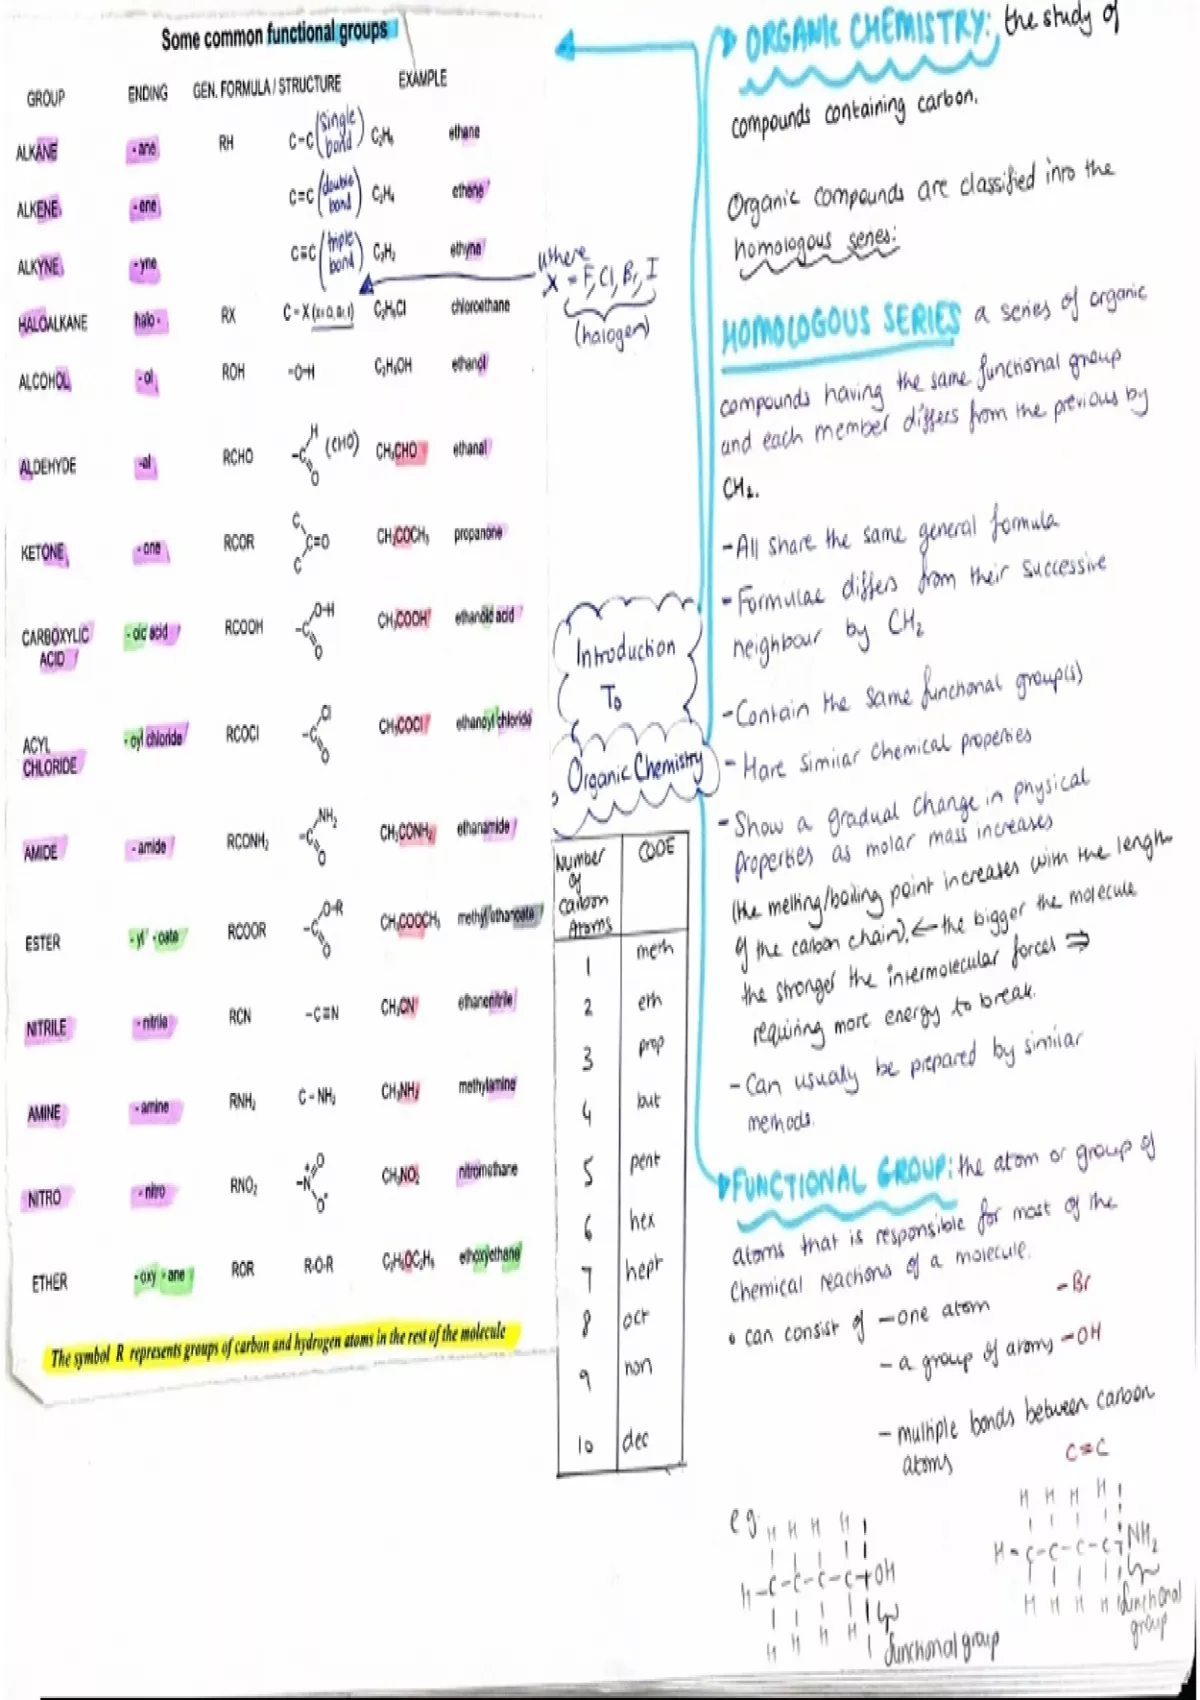 Some common functional groups
GROUP ENDING GEN. FORMULA / STRUCTURE EXAMPLE
ALKANE - ane RH C-C (single bond) C₂H₆ ethane
ALKENE - ene C=C (double bond) C₂H₄ ethene
ALKYNE - yne C≡C (triple bond) C₂H₂ ethyne
HALOALKANE halo - RX C - X C₂H₅Cl chloroethane
ALCOHOL - ol ROH -O-H C₂H₅OH ethanol
ALDEHYDE -al RCHO -C H O (CHO) CH₃CHO ethanal
KETONE - one RCOR C C=O C CH₃COCH₃ propanone
CARBOXYLIC ACID - oic acid RCOOH -C O-H O CH₃COOH ethanoic acid
ACYL CHLORIDE - oyl chloride RCOCl -C Cl O CH₃COCl ethanoyl chloride
AMIDE - amide RCONH₂ -C NH₂ O CH₃CONH₂ ethanamide
ESTER - yl - oate RCOOR -C O-R O CH₃COOCH₃ methyl ethanoate
NITRILE - nitrile RCN -C≡N CH₃CN ethanenitrile
AMINE - amine RNH₂ C - NH₂ CH₃NH₂ methylamine
NITRO - nitro RNO₂ -N O O CH₃NO₂ nitromethane
ETHER - oxy - ane ROR R-O-R C₂H₅OC₂H₅ ethoxyethane
The symbol R represents groups of carbon and hydrogen atoms in the rest of the molecule
where
X = F, Cl, Br, I
(halogen)
Introduction
To
Organic Chemistry
Number of Carbon Atoms CODE
1 meth
2 eth
3 prop
4 but
5 pent
6 hex
7 hept
8 oct
9 non
10 dec
ORGANIC CHEMISTRY: the study of
compounds containing carbon.
Organic compounds are classified into the
homologous series:
HOMOLOGOUS SERIES a series of organic
compounds having the same functional group
and each member differs from the previous by
CH₂.
- All share the same general formula
- Formulae differs from their successive
neighbour by CH₂
- Contain the same functional group(s)
- Have similar chemical properties
- Show a gradual change in physical
properties as molar mass increases
(the melting/boiling point increases with the length
of the carbon chain). ← the bigger the molecule
the stronger the intermolecular forces ⇒
requiring more energy to break.
- Can usually be prepared by similar
methods.
FUNCTIONAL GROUP: the atom or group of
atoms that is responsible for most of the
chemical reactions of a molecule.
• can consist of - one atom -Br
- a group of atoms -OH
- multiple bonds between carbon
atoms C=C
eg.
H H H H
H-C-C-C-C-OH
H H H H
functional group
H H H H
H-C-C-C-C-NH₂
H H H H
functional
group